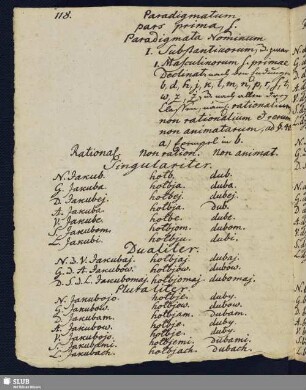 118. Paradigmatum
pars prima, S.
Paradigmata Nominum
1. Substantivorum, d. quar
1 Masculinorum s. primae
Declinat.
b, d, h, j, k, l, m, n, p, r, s, t,
rationalium
non rationalium et rerum
non animatarum,
a) in b.
Rational. Non ration. Non animat.
Singulariter.
N. Jakub. hołb. dub.
G. Jakuba hołbja. duba.
D. Jakubej. hołbej. dubej.
A. Jakuba hołbja. dub.
V. Jakube. hołbe. dube.
S. Jakubom. hołbjom. dubom.
L. Jakubi. hołbju. dubi.
Dualiter.
N. D. V. Jakubaj. hołbjaj. dubaj.
G. D. A. Jakubow. hołbjow. dubow.
D. S. D. L. Jakubomaj. hołbjomaj. dubomaj.
Pluraliter.
N. Jakubojo. hołbje. duby.
G. Jakubow. hołbjow. dubow.
D. Jakubam. hołbjam. dubam.
A. Jakubow. hołbje. duby.
V. Jakubojo. hołbje. duby.
S. Jakubemi. hołbjemi. dubami.
L. Jakubach. hołbjach. dubach.
SLUB
Wir führen Wissen.